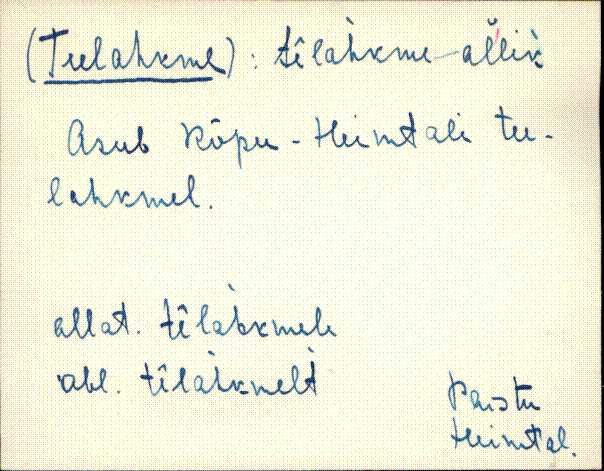 (Teelahkme) : têlàhkme-al̆lik̀
Asub Kõpu-Heimtali tee-
lahkmel.
allat. têlàhkmele
abl. têlàhkmelt̀
Paistu
Heimtal.